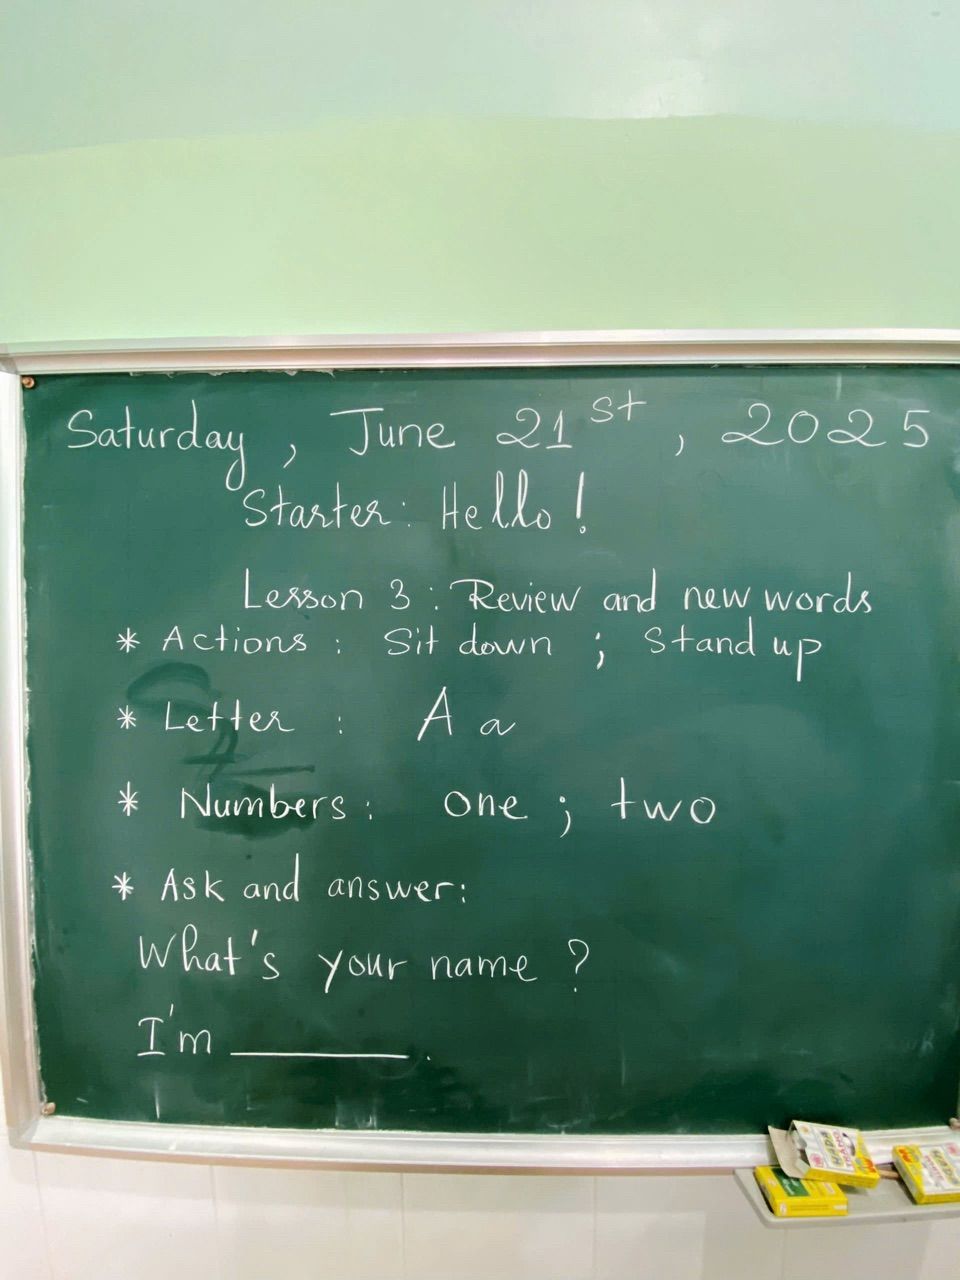 Saturday, June 21st, 2025
Starter: Hello!
Lesson 3: Review and new words
* Actions: Sit down; Stand up
* Letter: A a
* Numbers: one; two
* Ask and answer:
What's your name?
I'm ________.